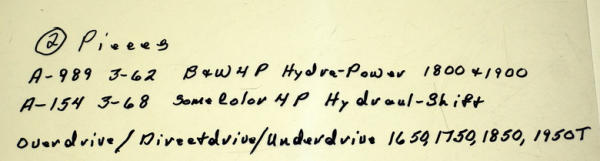 ② Pieces
A-989 3-62 B&W 4P Hydra-Power 1800 & 1900
A-154 3-68 Some Color 4P Hydraul-Shift
Overdrive/Directdrive/Underdrive 1650, 1750, 1850, 1950T